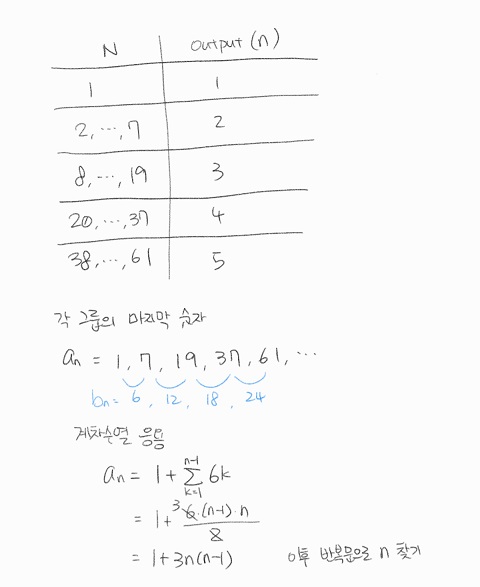 N Output (n)
1 1
2, ⋯, 7 2
8, ⋯, 19 3
20, ⋯, 37 4
38, ⋯, 61 5
각 그룹의 마지막 숫자
aₙ = 1, 7, 19, 37, 61, ⋯
bₙ = 6, 12, 18, 24
계차수열 응용
aₙ = 1 + ∑ₖ₌₁ⁿ⁻¹ 6k
= 1 + 3 6·(n-1)·n / 2
= 1 + 3n(n-1) 이후 반복문으로 n 찾기